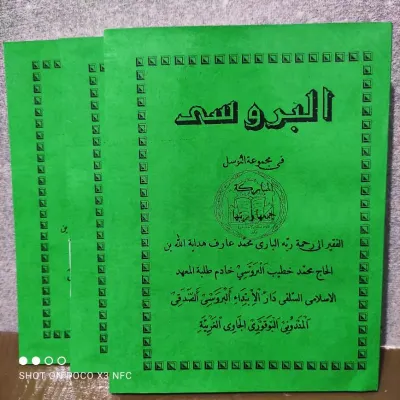 البروسى
في مجموعة التوسل
المباركة
جمعها ورتبها
الفقير الى رحمة ربه البارى محمد عارف هداية الله بن
الحاج محمد خطيب البروسي خادم طلبة المعهد
الاسلامى السلفى دار الابتداء البروسى
الجاوى الغربية
بن
SHOT ON POCO X3 NFC